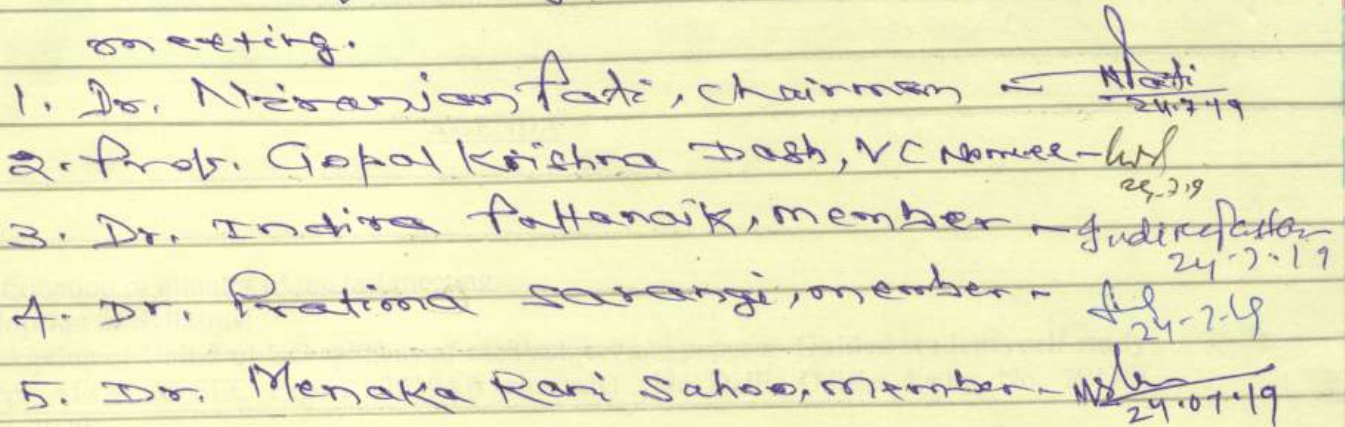 meeting.
1. Dr. Niranjan Pati, Chairman - NPati
24.7.19
2. Prof. Gopal Krishna Dash, VC Nomiee -
24.7.19
3. Dr. Indira Pattanaik, member - Indira Pattan
24.7.19
4. Dr. Pratima Sarangi, member -
24-7-19
5. Dr. Menaka Rani Sahoo, member -
24.07.19